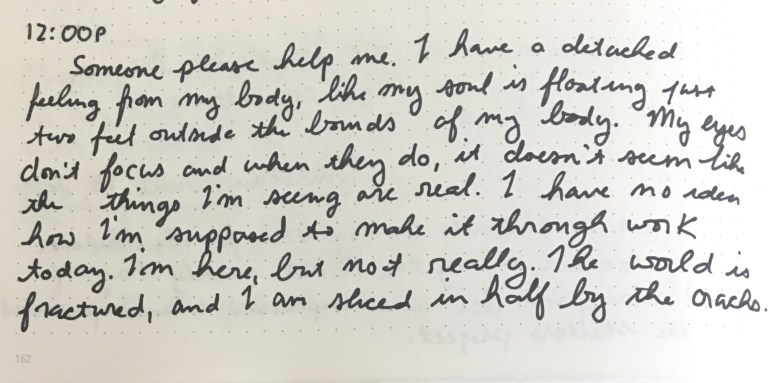 12:00P
Someone please help me. I have a detached
feeling from my body, like my soul is floating just
two feet outside the bounds of my body. My eyes
don't focus and when they do, it doesn't seem like
the things I'm seeing are real. I have no idea
how I'm supposed to make it through work
today. I'm here, but not really. The world is
fractured, and I am sliced in half by the cracks.
162